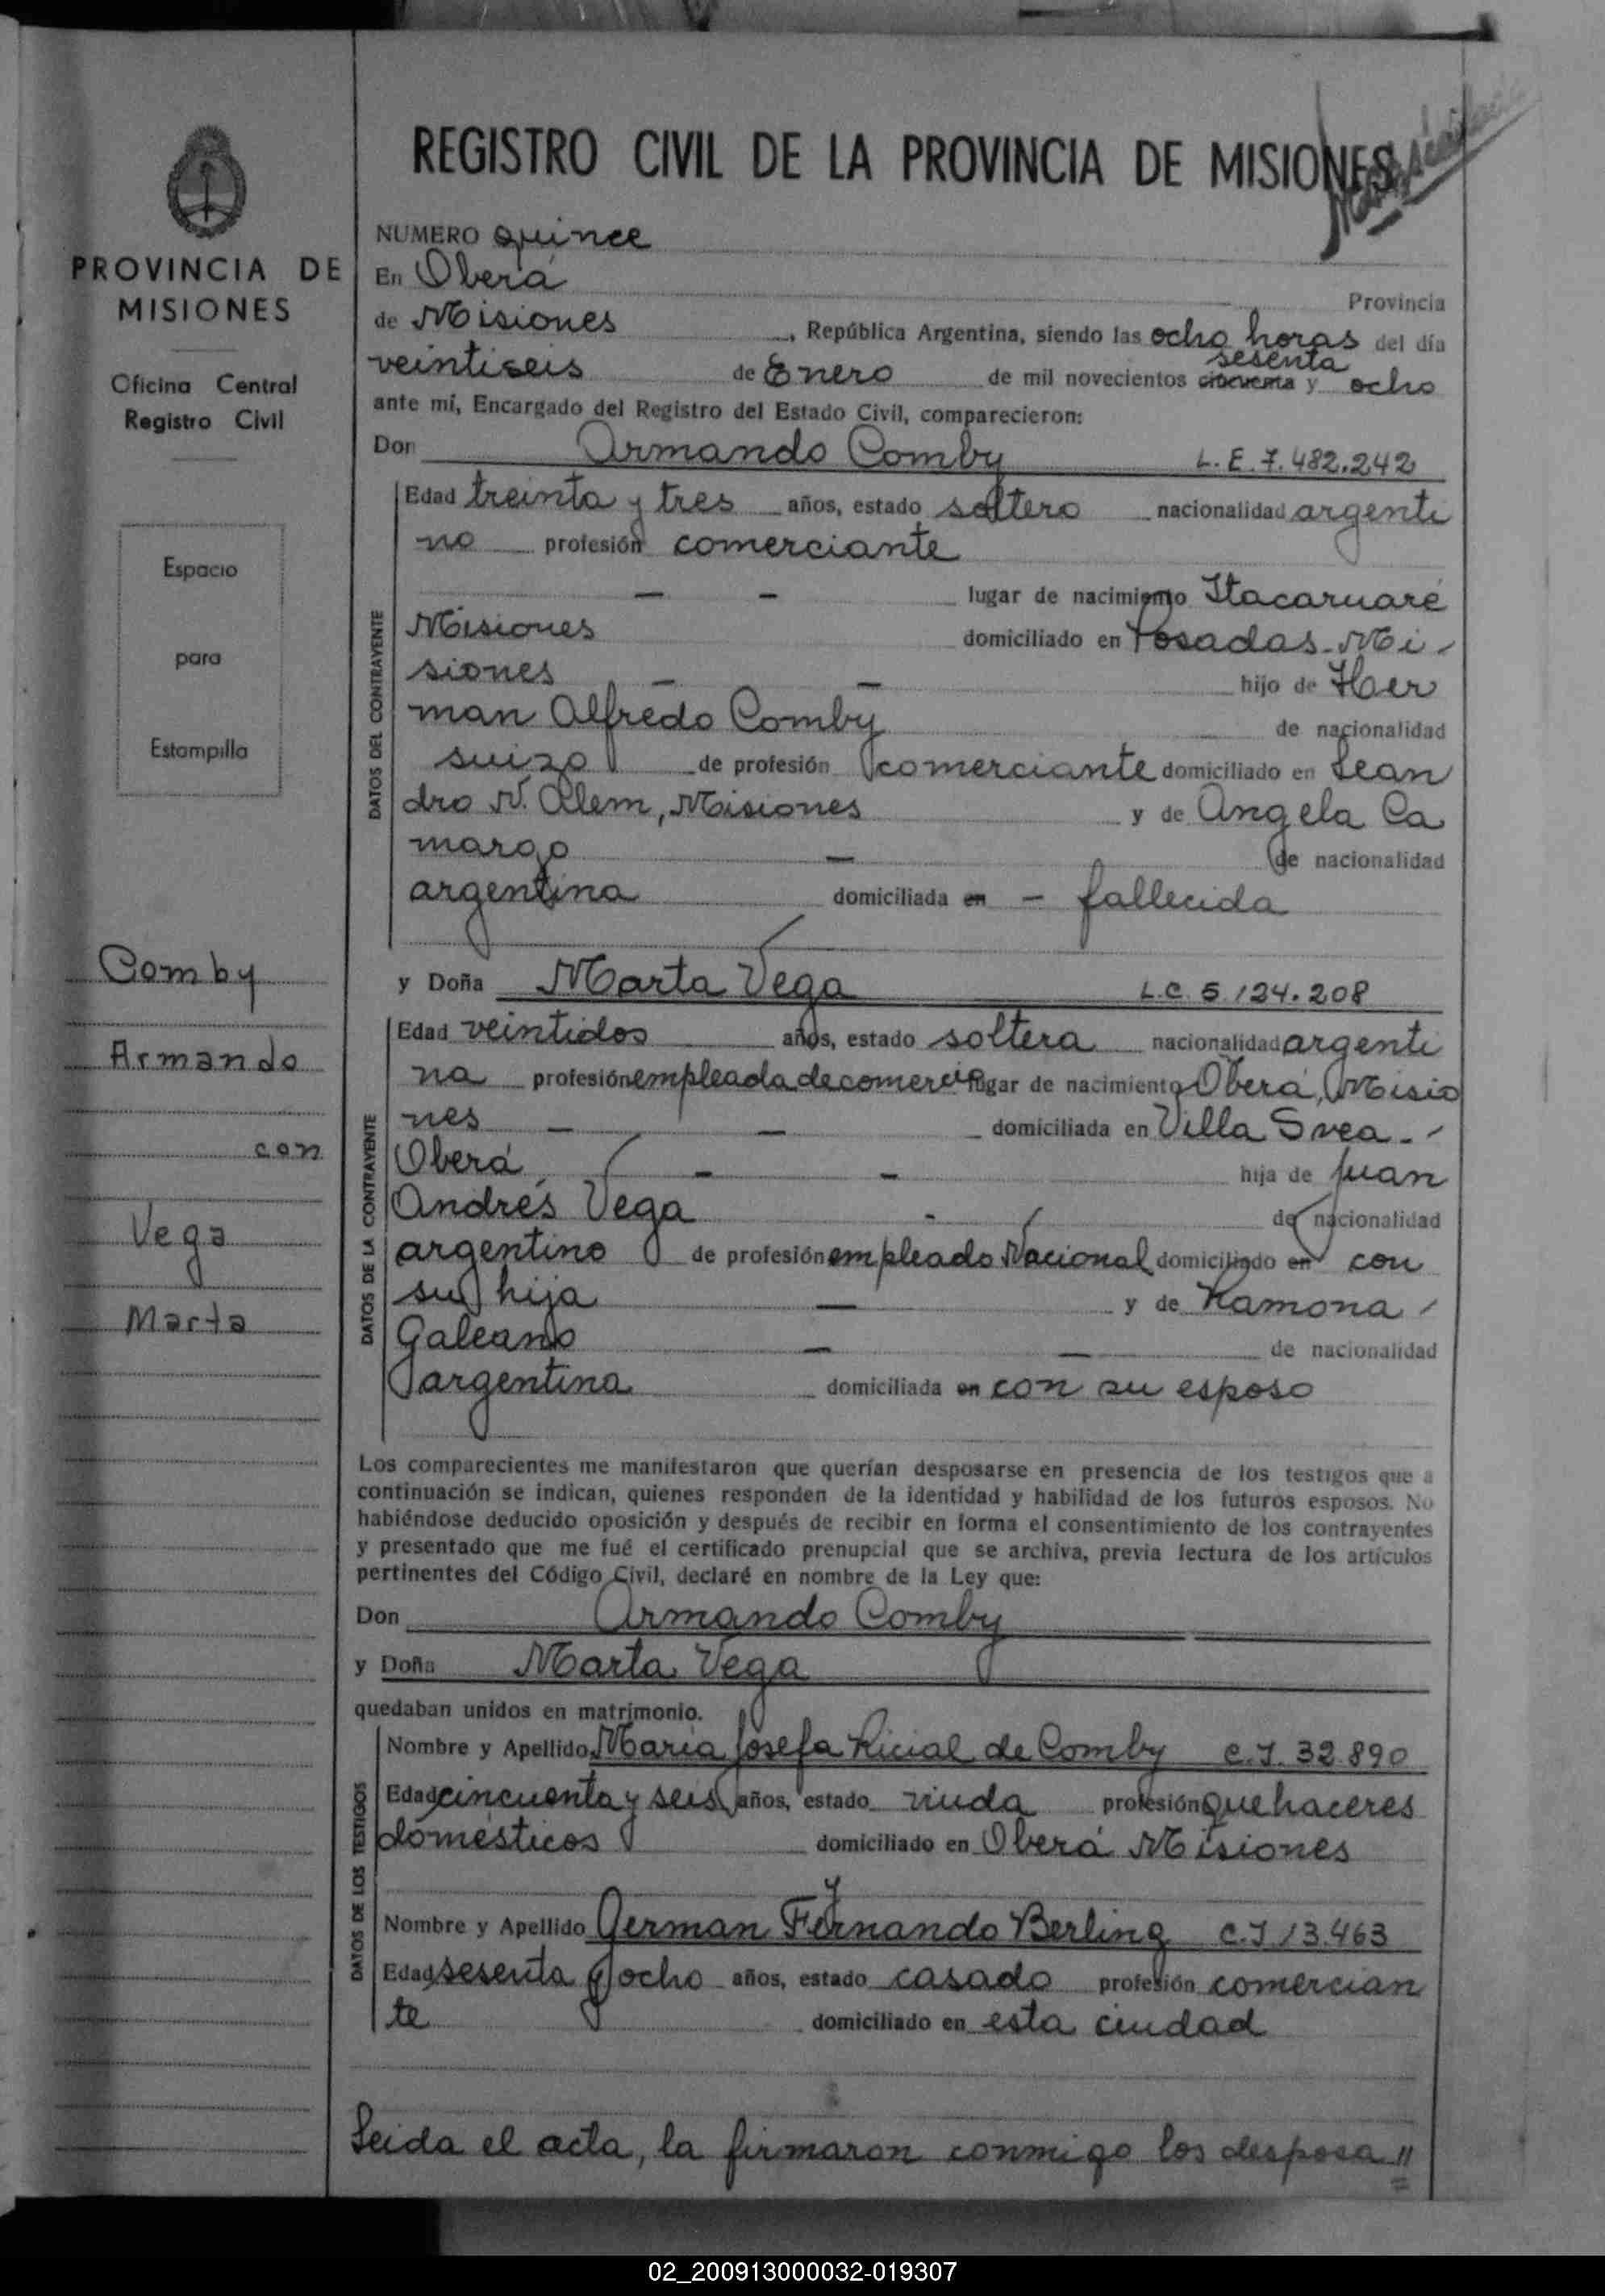 REGISTRO CIVIL DE LA PROVINCIA DE MISIONES
PROVINCIA DE
MISIONES
Oficina Central
Registro Civil
Espacio
para
Estampilla
Comby
Armando
con
Vega
Marta
NUMERO quince
En Oberá Provincia
de Misiones, República Argentina, siendo las ocho horas del día
veintiseis de Enero de mil novecientos cincuenta sesenta y ocho
ante mí, Encargado del Registro del Estado Civil, comparecieron:
Don Armando Comby L.E. 7.482.242
DATOS DEL CONTRAYENTE
Edad treinta y tres años, estado soltero nacionalidad argenti
no profesión comerciante
— — lugar de nacimiento Itacaruaré
Misiones domiciliado en Posadas - Mi -
siones — — hijo de Her
man Alfredo Comby de nacionalidad
suizo de profesión comerciante domiciliado en Lean
dro N. Alem, Misiones y de Angela Ca
margo — de nacionalidad
argentina domiciliada en — fallecida
y Doña Marta Vega L.C. 5.124.208
DATOS DE LA CONTRAYENTE
Edad veintidos años, estado soltera nacionalidad argenti
na profesión empleada de comercio lugar de nacimiento Oberá, Misio
nes — — domiciliada en Villa Svea -
Oberá — — hija de Juan
Andrés Vega - de nacionalidad
argentino de profesión empleado Nacional domiciliado en con
su hija — y de Ramona
Galeano — — de nacionalidad
argentina domiciliada en con su esposo
Los comparecientes me manifestaron que querían desposarse en presencia de los testigos que a
continuación se indican, quienes responden de la identidad y habilidad de los futuros esposos. No
habiéndose deducido oposición y después de recibir en forma el consentimiento de los contrayentes
y presentado que me fué el certificado prenupcial que se archiva, previa lectura de los artículos
pertinentes del Código Civil, declaré en nombre de la Ley que:
Don Armando Comby
y Doña Marta Vega
quedaban unidos en matrimonio.
DATOS DE LOS TESTIGOS
Nombre y Apellido María Josefa Ricial de Comby C.I. 32.890
Edad cincuenta y seis años, estado viuda profesión quehaceres
domésticos domiciliado en Oberá Misiones
y
Nombre y Apellido German Fernando Berling C.I 13.463
Edad sesenta y ocho años, estado casado profesión comercian
te domiciliado en esta ciudad
Leida el acta, la firmaron conmigo los desposa //
02_200913000032-019307